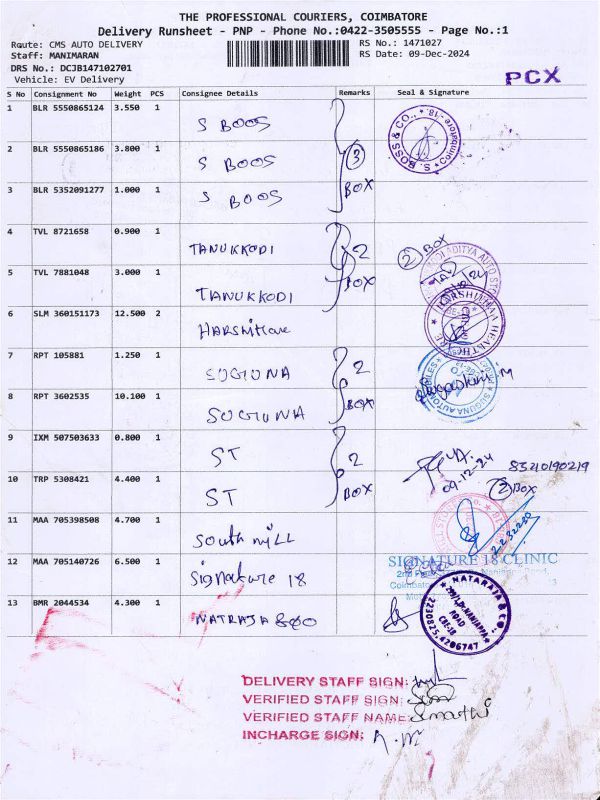 THE PROFESSIONAL COURIERS, COIMBATORE
Delivery Runsheet - PNP - Phone No.:0422-3505555 - Page No.:1
Route: CMS AUTO DELIVERY
RS No.: 1471027
Staff: MANIMARAN
RS Date: 09-Dec-2024
DRS No.: DCJB147102701
Vehicle: EV Delivery
PCX
S No Consignment No Weight PCS Consignee Details Remarks Seal & Signature
1 BLR 5550865124 3.550 1 S BOOS
S. BOSS & CO., Coimbatore-18.
2 BLR 5550865186 3.800 1 S BOOS 3
3 BLR 5352091277 1.000 1 S BOOS BOX
4 TVL 8721658 0.900 1 TANUKKODI 2 2 BOX
ADITYA AUTO
5 TVL 7881048 3.000 1 TANUKKODI BOX
6 SLM 360151173 12.500 2 Harshitkae
7 RPT 105881 1.250 1 SUGUNA 2
SUGUNA AUTOMOBILES
8 RPT 3602535 10.100 1 SUGUNA BOX
9 IXM 507503633 0.800 1 ST 2
09-12-24
10 TRP 5308421 4.400 1 ST BOX 2 BOX
11 MAA 705398508 4.700 1 South mill
2232230
12 MAA 705140726 6.500 1 Signature 18
SIGNATURE 18 CLINIC
13 BMR 2044534 4.300 1 NATRAJA &CO
NATARAJA & CO.,
ROAD
CBE-18
2230825, 4206747
DELIVERY STAFF SIGN:
VERIFIED STAFF SIGN:
VERIFIED STAFF NAME:
INCHARGE SIGN: